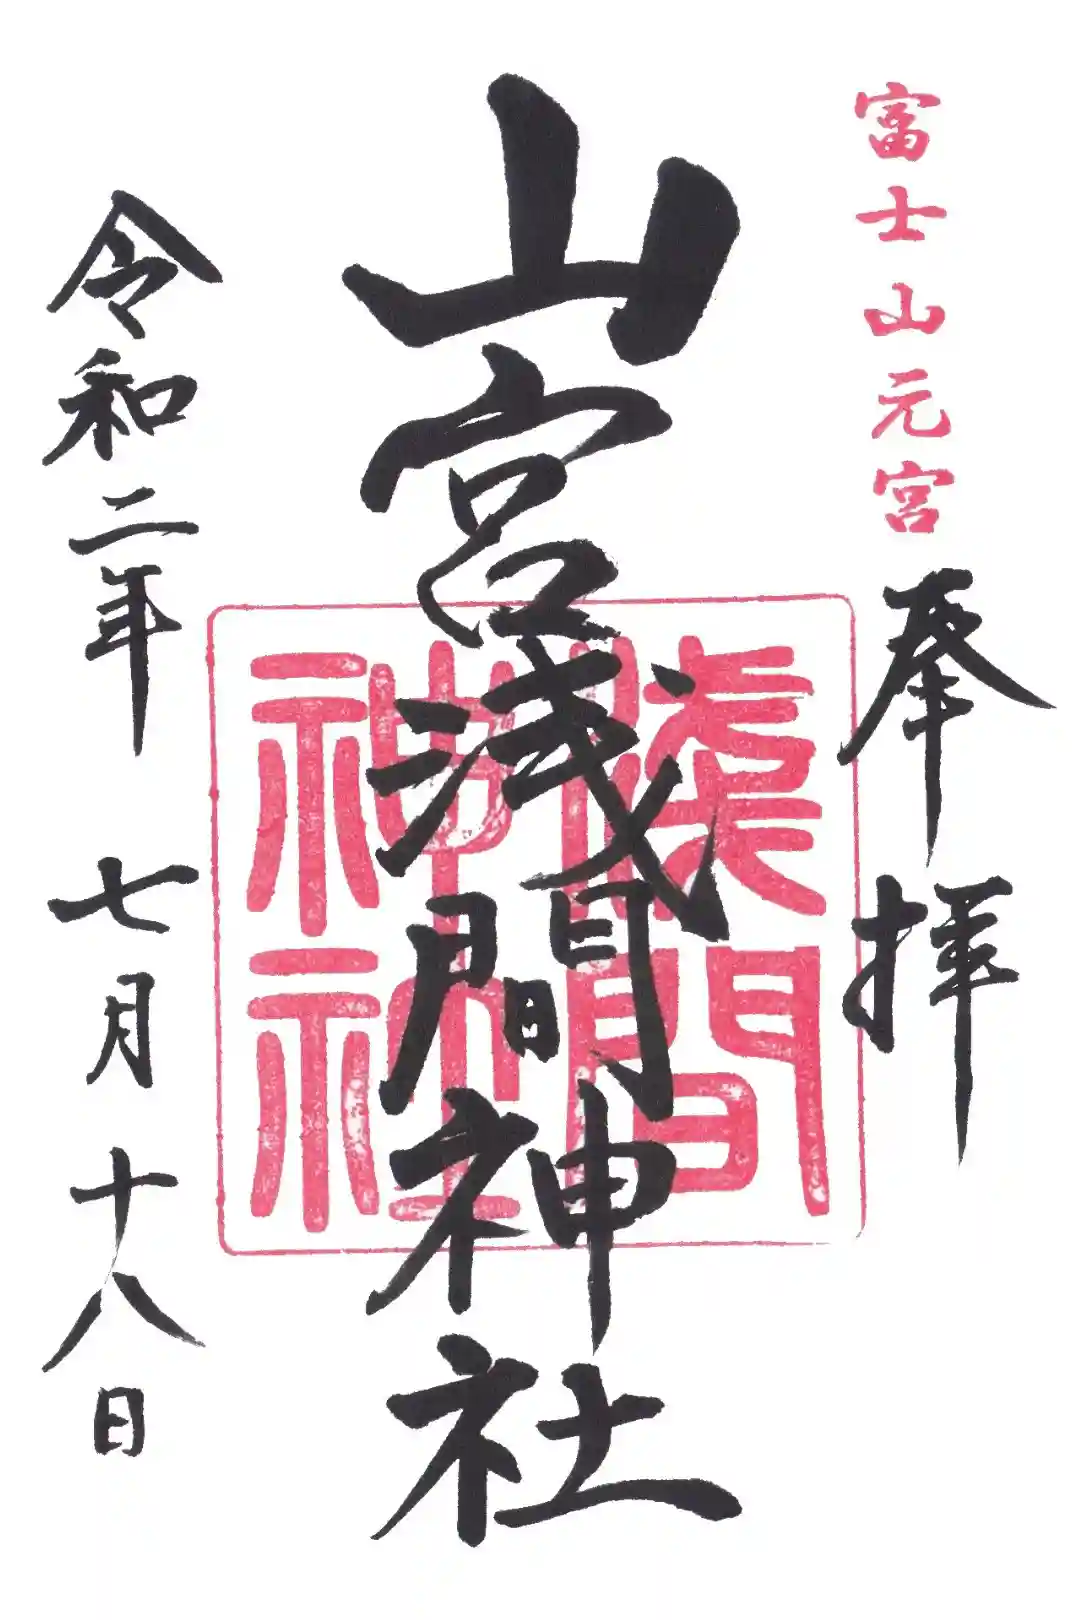 富士山元宮
奉拝
山宮浅間神社
淺間
神社
令和二年 七月 十八日